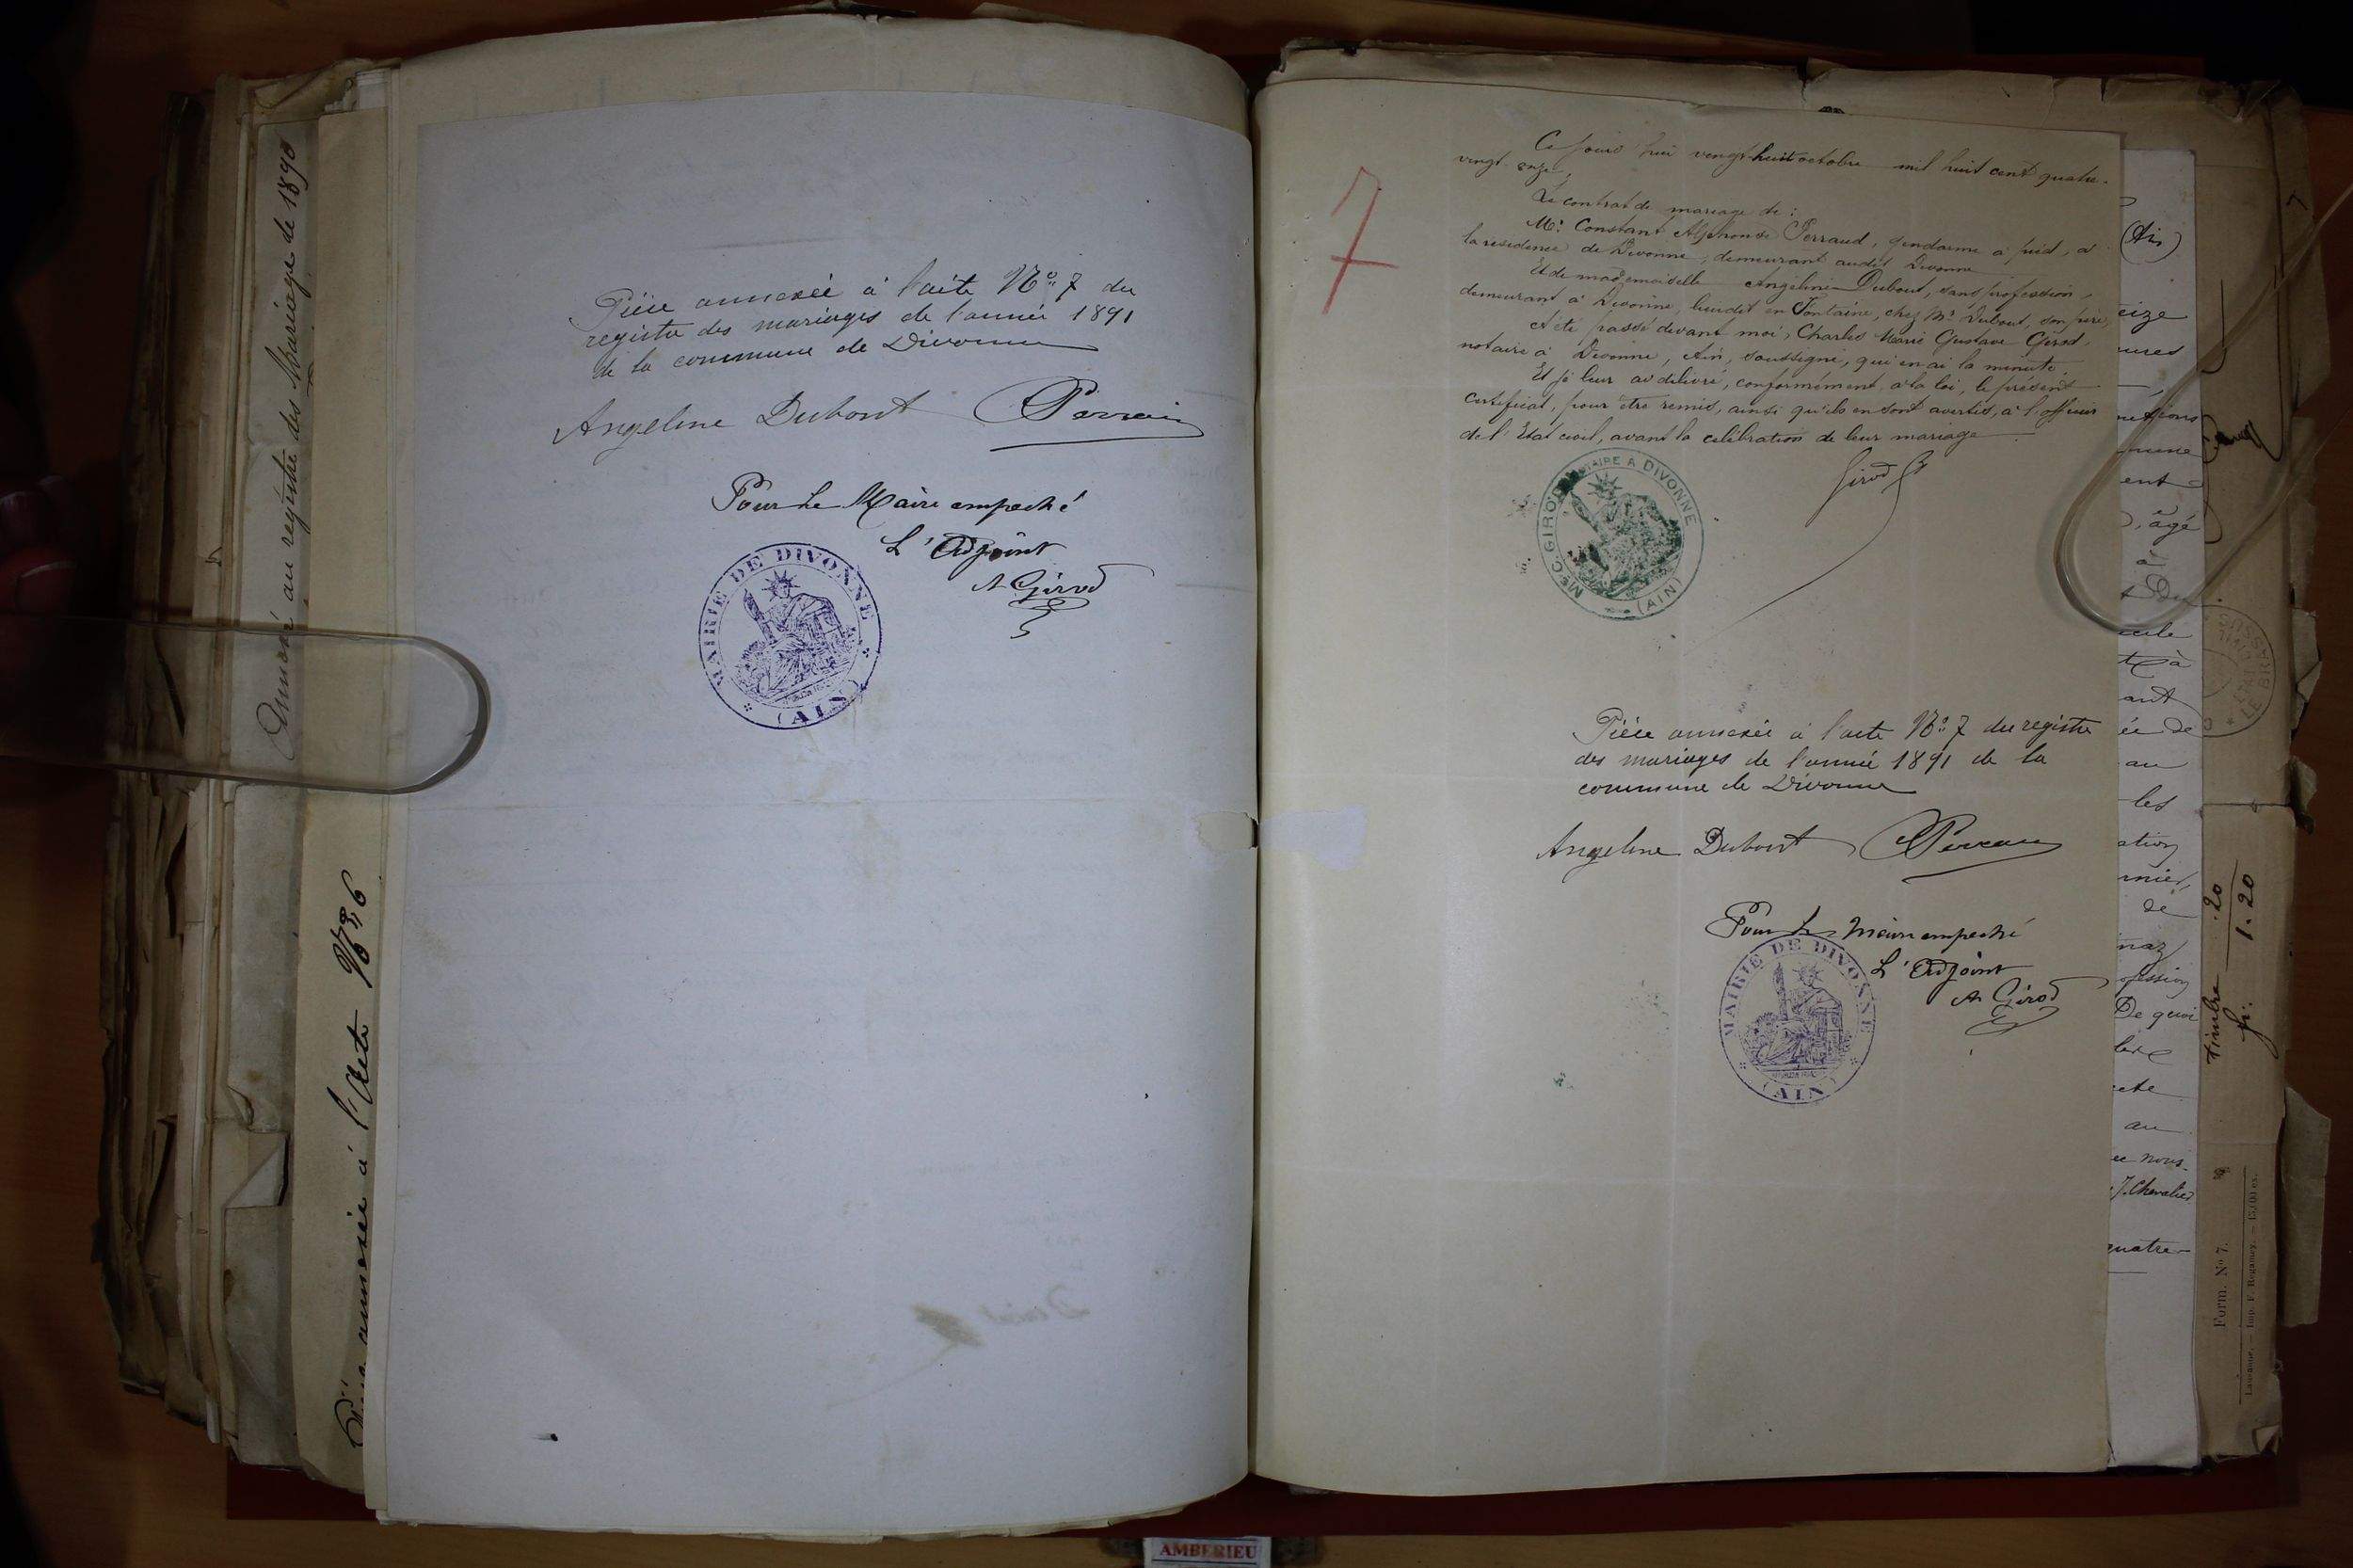 Annexé au registre des Mariage de 1890
Pièce annexée à l'Acte No 6
Pièce annexée à l'acte No 7 du
registre des mariages de l'année 1891
de la commune de Divonne
Angeline Dubout Perraud
Pour Le Maire empeché
L'Adjoint
A Girod
MAIRIE DE DIVONNE
(AIN)
7
Ce jourd'hui vengt-huit octobre mil huit cent quatre-
vingt onze,
Le contrat de mariage de :
Mr Constant Alphonse Perraud, gendarme à pied, à
la résidence de Divonne, demeurant audit Divonne
Et de mademoiselle Angéline Dubout, sans profession,
demeurant à Divonne, lieudit en Fontaine, chez Mr Dubout, son père,
A été passé devant moi, Charles Marie Gustave Girod,
notaire à Divonne, Ain, soussigné, qui en ai la minute.
Et je leur ai délivré, conformément à la loi, le présent
certificat, pour être remis, ainsi qu'ils en sont avertis, à l'officier
de l'Etat civil, avant la célébration de leur mariage.
Girod
Me C. GIROD NOTAIRE A DIVONNE
(AIN)
Pièce annexée à l'acte No 7 du registre
des mariages de l'année 1891 de la
commune de Divonne
Angeline Dubout Perraud
Pour Le Maire empeché
L'Adjoint
A Girod
MAIRIE DE DIVONNE
(AIN)
(Ain)
eize
ures
ent
, âgé
à
ant
ée de
au
les
ation
de
naz
ofession
De quoi
au
ec nous
J. Chevalier
quatre-
timbre .20
fr. 1.20
Form. No 7.
Lausanne. — Imp. F. Regamey. — 15,00 ex.
AMBERIEU